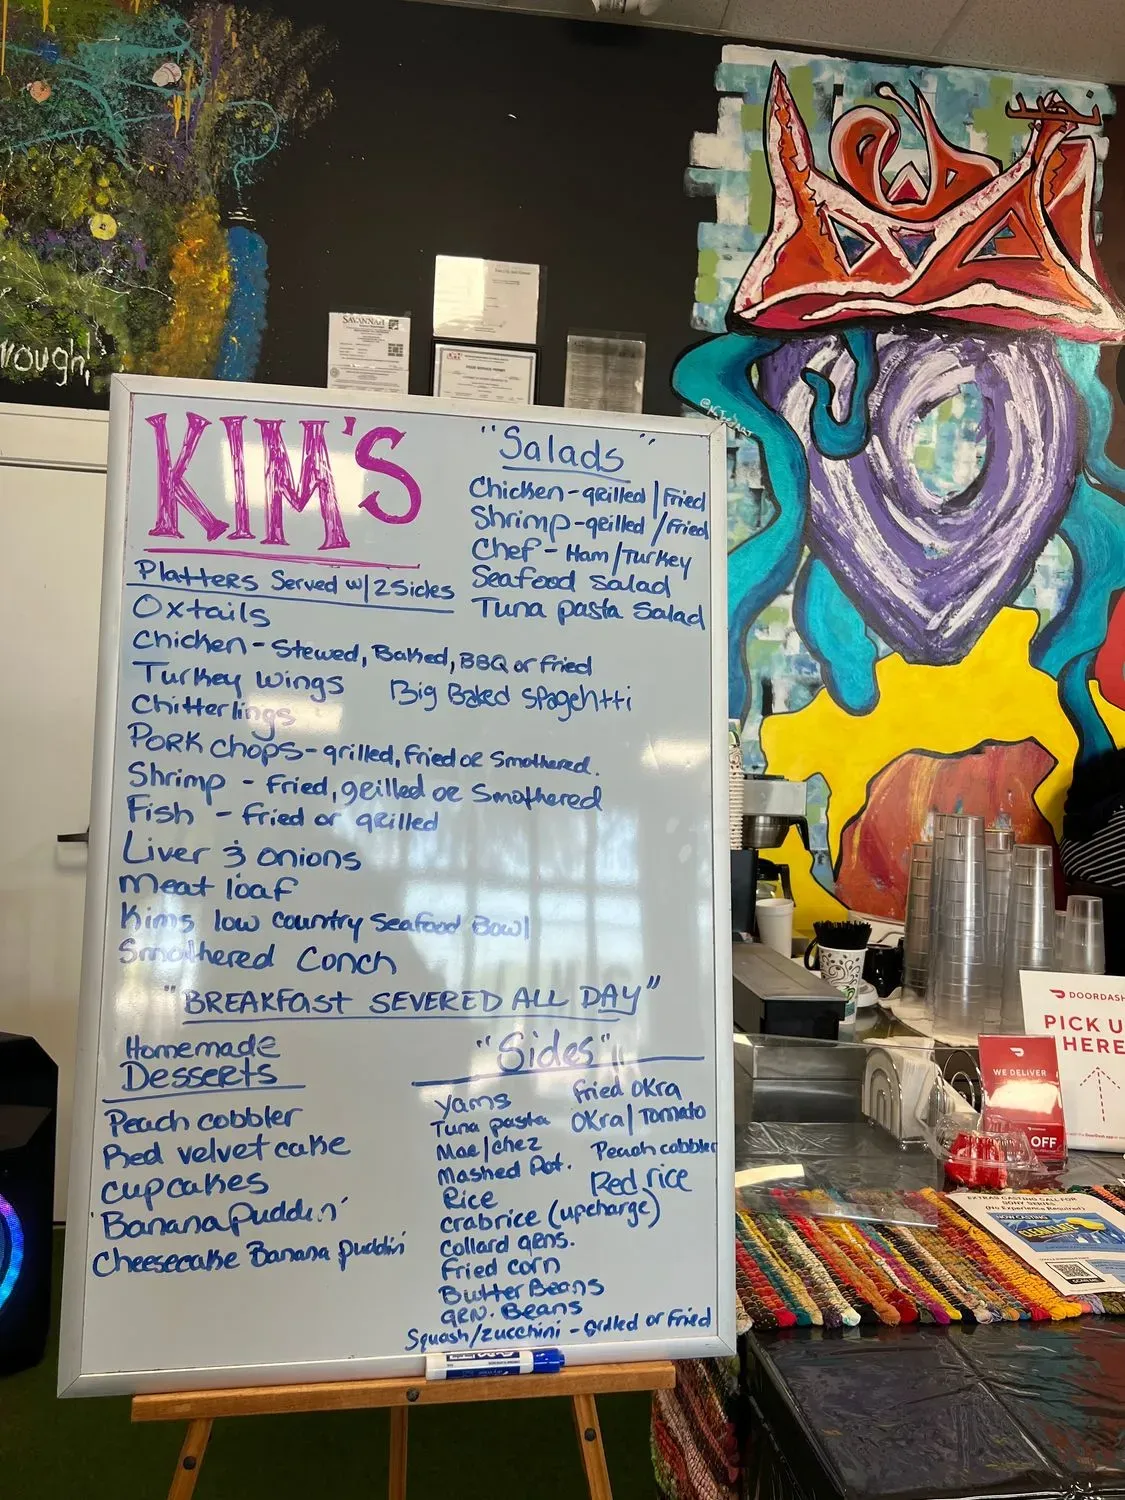 rough!
SAVANNAH
FOOD SERVICE PERMIT
KIM'S
Platters Served w/ 2 Sides
Oxtails
Chicken - Stewed, Baked, BBQ or Fried
Turkey wings Big Baked Spagehtti
Chitterlings
Pork chops - grilled, Fried or Smothered.
Shrimp - Fried, grilled or Smothered
Fish - Fried or grilled
Liver & onions
Meat loaf
Kims low country Seafood Bowl
Smothered Conch
"Salads"
Chicken - grilled / Fried
Shrimp - grilled / Fried
Chef - Ham / Turkey
Seafood Salad
Tuna pasta Salad
"BREAKFast SEVERED ALL DAY"
Homemade
Desserts
Peach cobbler
Red velvet cake
cupcakes
'Banana Puddin'
Cheesecake Banana puddin'
"Sides"
Yams
Tuna pasta
Mac/chez
Mashed Pot.
Rice
crabrice (upcharge)
Collard grns.
Fried corn
Butter Beans
GRN. Beans
Squash/zucchini - Grilled or Fried
Fried OKra
OKra/Tomato
Peach cobbler
Red rice
DOORDASH
PICK U
HERE
WE DELIVER
OFF
EXTRAS CASTING CALL FOR
(No Experience Required)
NOW CASTING